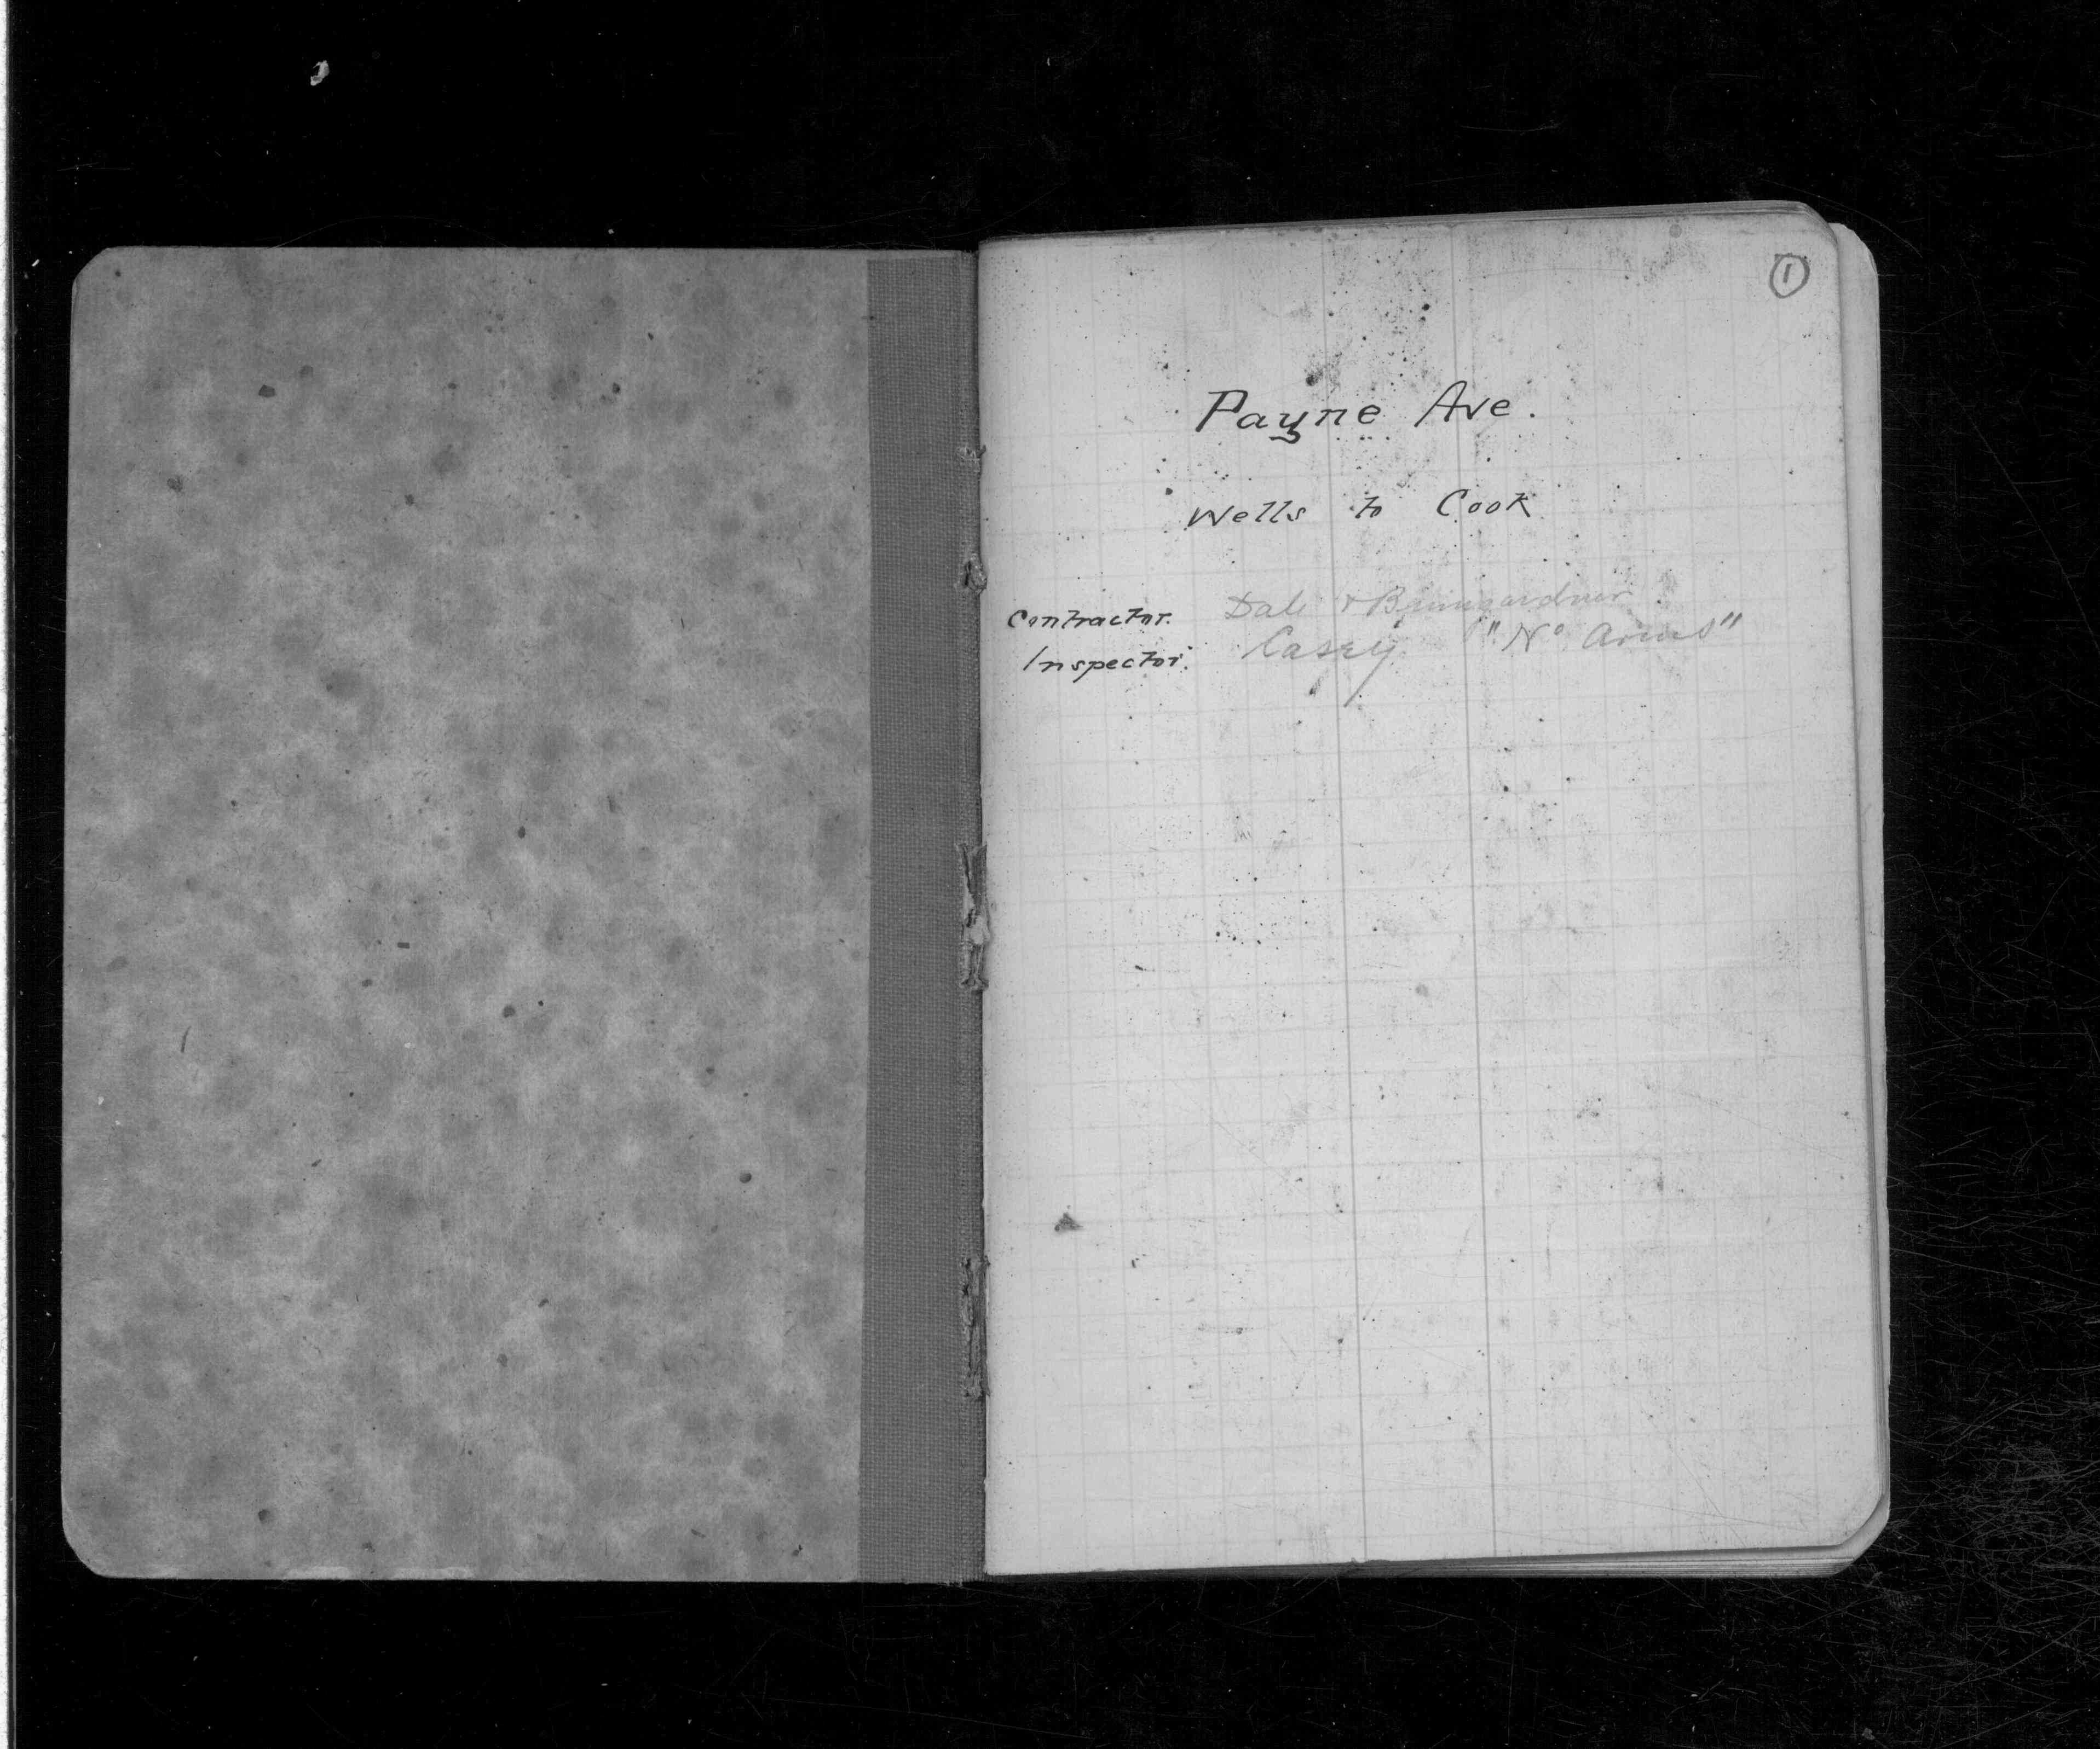 1
Payne Ave.
Wells to Cook
Contractor. Dale & Bumgardner.
Inspector. Casey "No Arms"